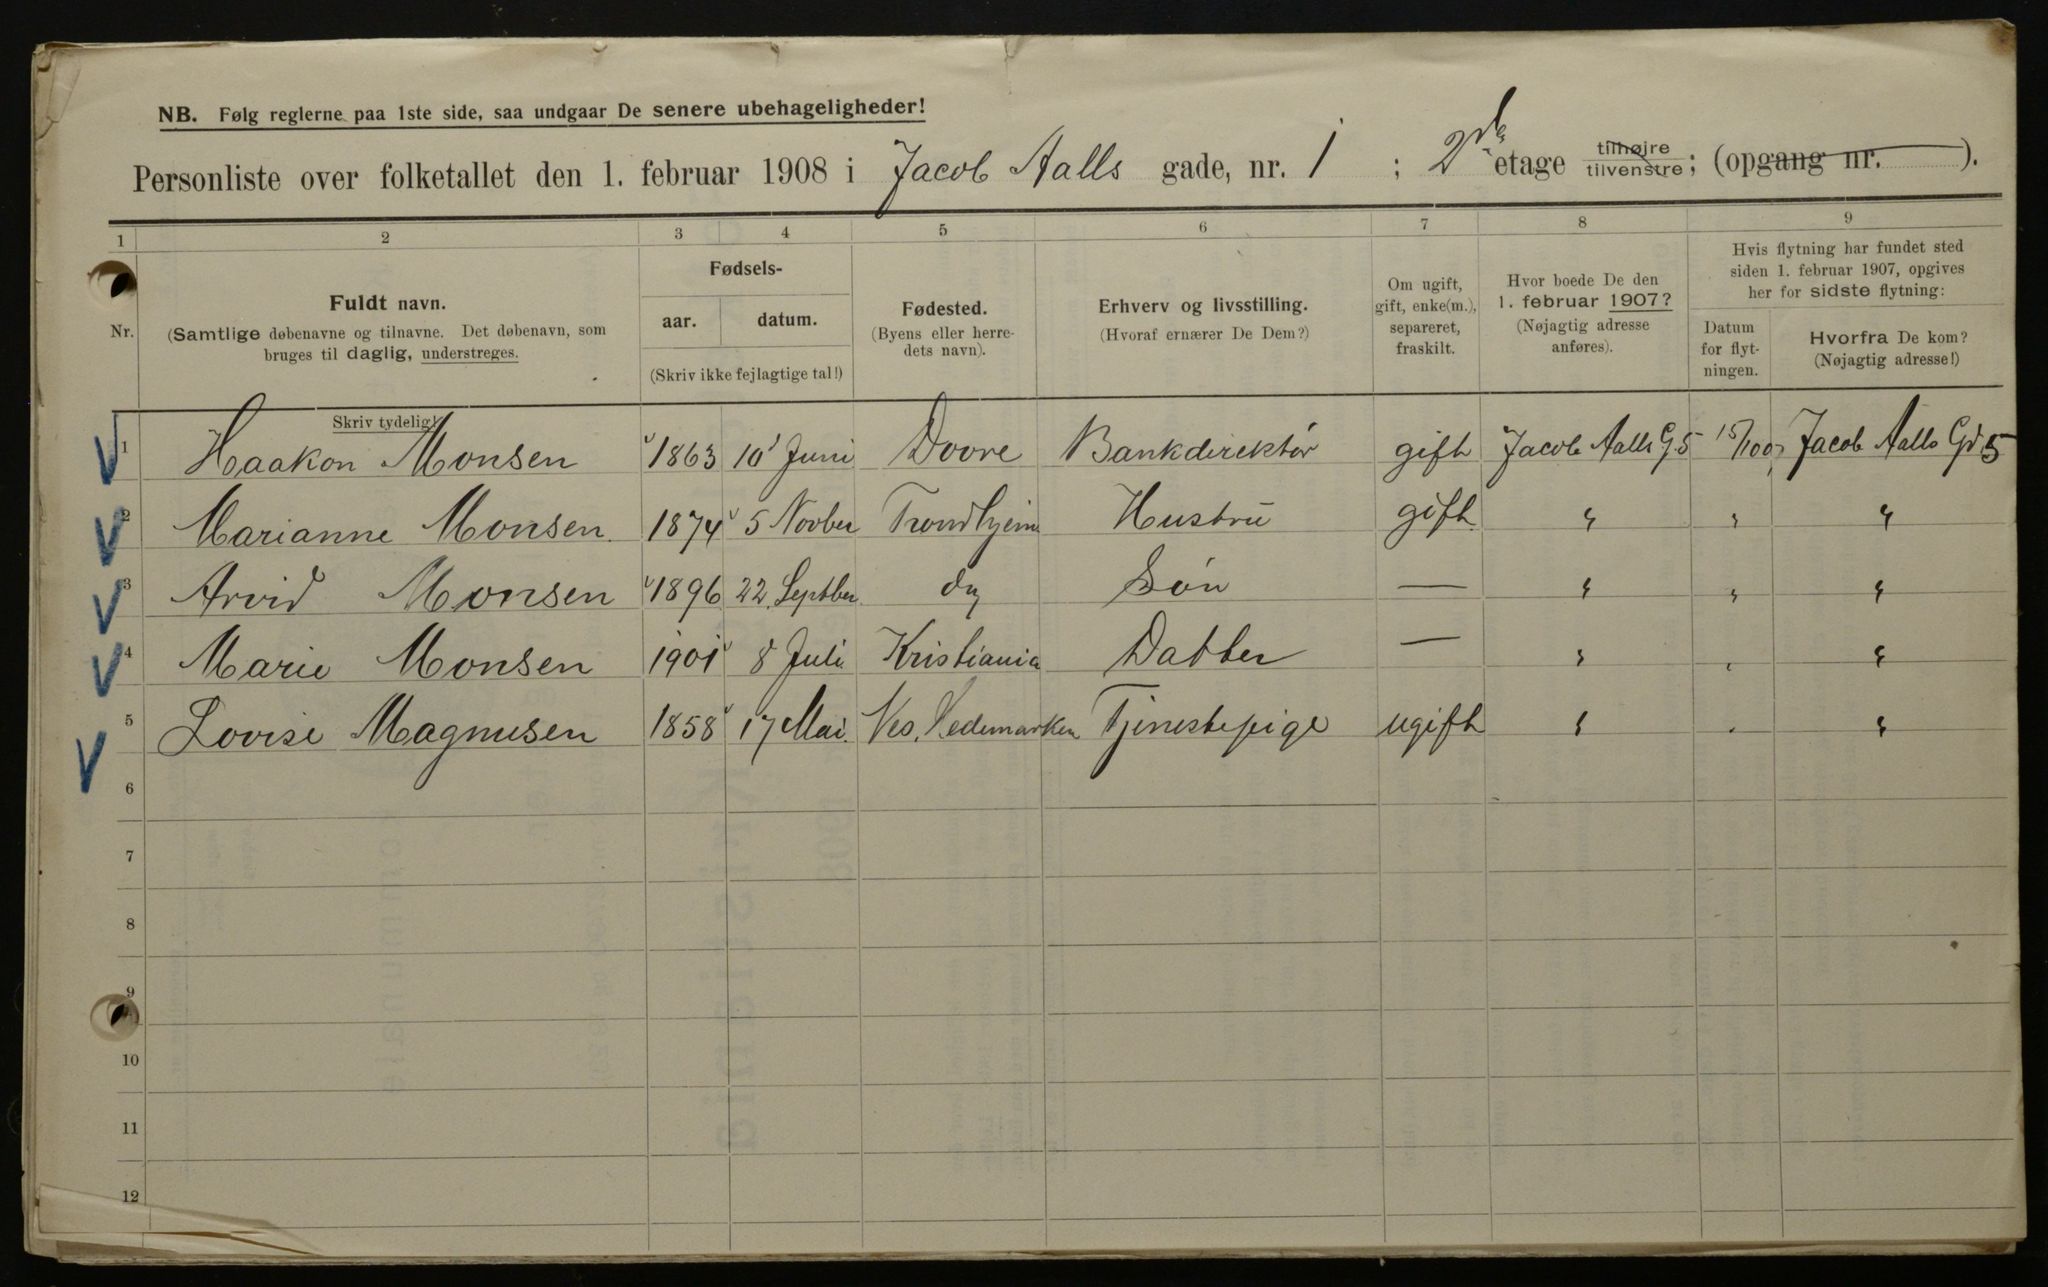 NB. Følg reglerne paa 1ste side, saa undgaar De senere ubehageligheder!
Personliste over folketallet den 1. februar 1908 i Jacob Aalls gade, nr. 1 ; 2den etage tilhøjre tilvenstre; (opgang nr. ).
1 2 3 4 5 6 7 8 9
Nr.
Fuldt navn.
(Samtlige døbenavne og tilnavne. Det døbenavn, som
bruges til daglig, understreges.
Skriv tydelig!
Fødsels-
aar. datum.
(Skriv ikke fejlagtige tal!)
Fødested.
(Byens eller herre-
dets navn).
Erhverv og livsstilling.
(Hvoraf ernærer De Dem?)
Om ugift,
gift, enke(m.),
separeret,
fraskilt.
Hvor boede De den
1. februar 1907?
(Nøjagtig adresse
anføres).
Hvis flytning har fundet sted
siden 1. februar 1907, opgives
her for sidste flytning:
Datum
for flyt-
ningen.
Hvorfra De kom?
(Nøjagtig adresse!)
1 Haakon Monsen 1863 10 Juni Dovre Bankdirektør gift Jacob Aalls G. 5 15/10 07 Jacob Aalls Gd 5
2 Marianne Monsen. 1874 5 Novber Trondhjem Hustru gift " " "
3 Arvid Monsen 1896 22. Septber do Søn — " " "
4 Marie Monsen 1901 8 Juli Kristiania Datter — " " "
5 Lovise Magnusen 1858 17 Mai. Nes, Hedemarken Tjenestepige ugift " " "
6
7
8
9
10
11
12